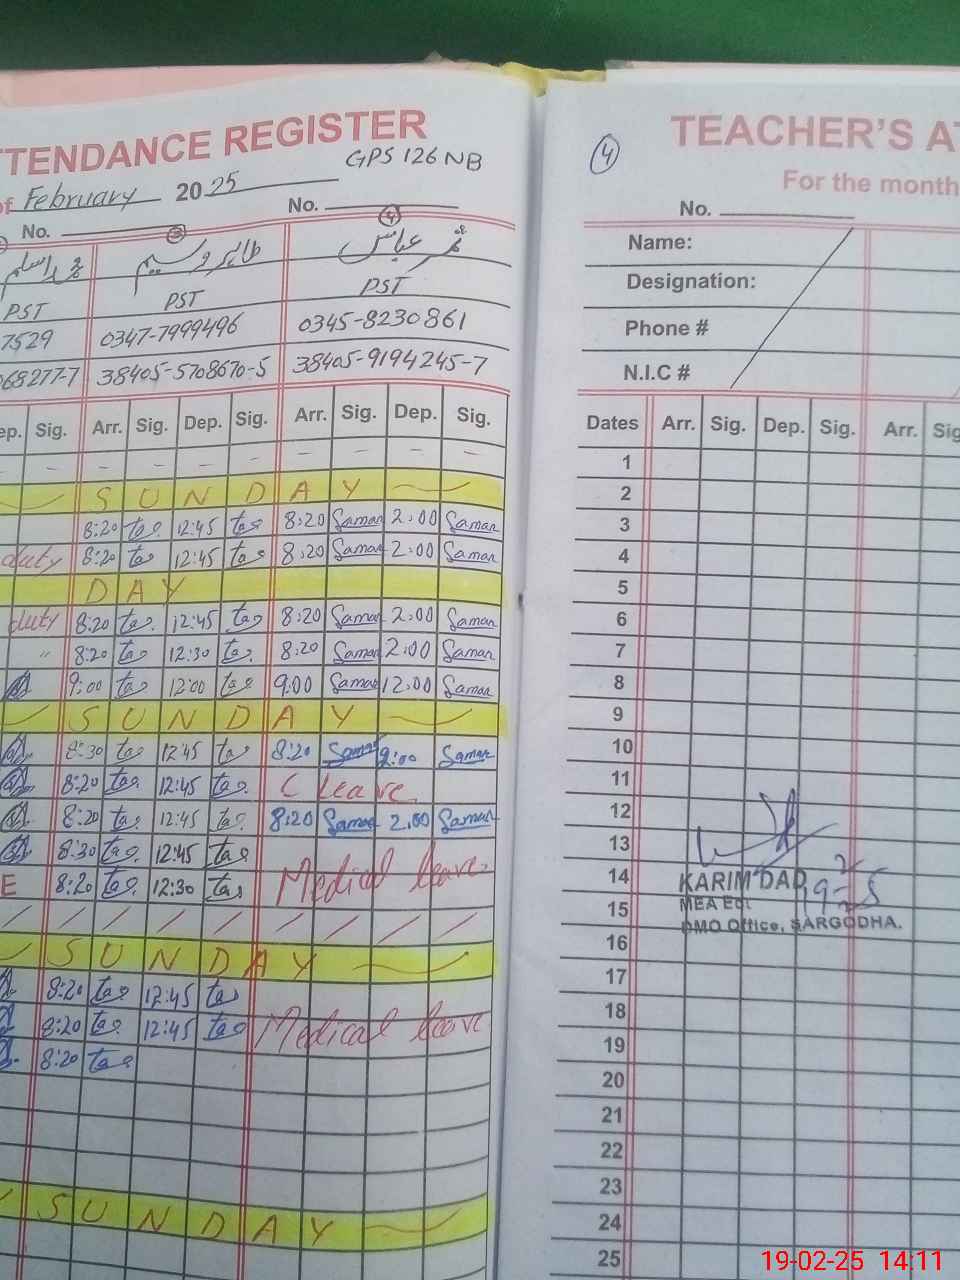 TTENDANCE REGISTER
GPS 126 NB
of February 2025
No. No.
③ ④
محمد اسلم طاہر وسیم ثمر عباس
PST PST PST
7529 0347-7999496 0345-8230861
068277-7 38405-5708670-5 38405-9194245-7
ep. Sig. Arr. Sig. Dep. Sig. Arr. Sig. Dep. Sig.
- - - - - - - - - -
SUNDAY
8:20 tas 12:45 tas 8:20 Samar 2:00 Samar
duty 8:20 tas 12:45 tas 8:20 Samar 2:00 Samar
DAY
duty 8:20 tas 12:45 tas 8:20 Samar 2:00 Samar
" 8:20 tas 12:30 tas 8:20 Samar 2:00 Samar
9:00 tas 12:00 tas 9:00 Samar 12:00 Samar
SUNDAY
8:30 tas 12:45 tas 8:20 Samar 2:00 Samar
8:20 tas 12:45 tas C leave
8:20 tas 12:45 tas 8:20 Samar 2:00 Samar
8:30 tas 12:45 tas
E 8:20 tas 12:30 tas Medical leave
/ / / / / / / / / /
SUNDAY
8:20 tas 12:45 tas
8:20 tas 12:45 tas Medical leave
8:20 tas
SUNDAY
④
TEACHER'S AT
For the month
No.
Name:
Designation:
Phone #
N.I.C #
Dates Arr. Sig. Dep. Sig. Arr. Sig
1
2
3
4
5
6
7
8
9
10
11
12
13
14
15
16
17
18
19
20
21
22
23
24
25
KARIM DAD
MEA
DMO Office, SARGODHA.
19-02-25 14:11